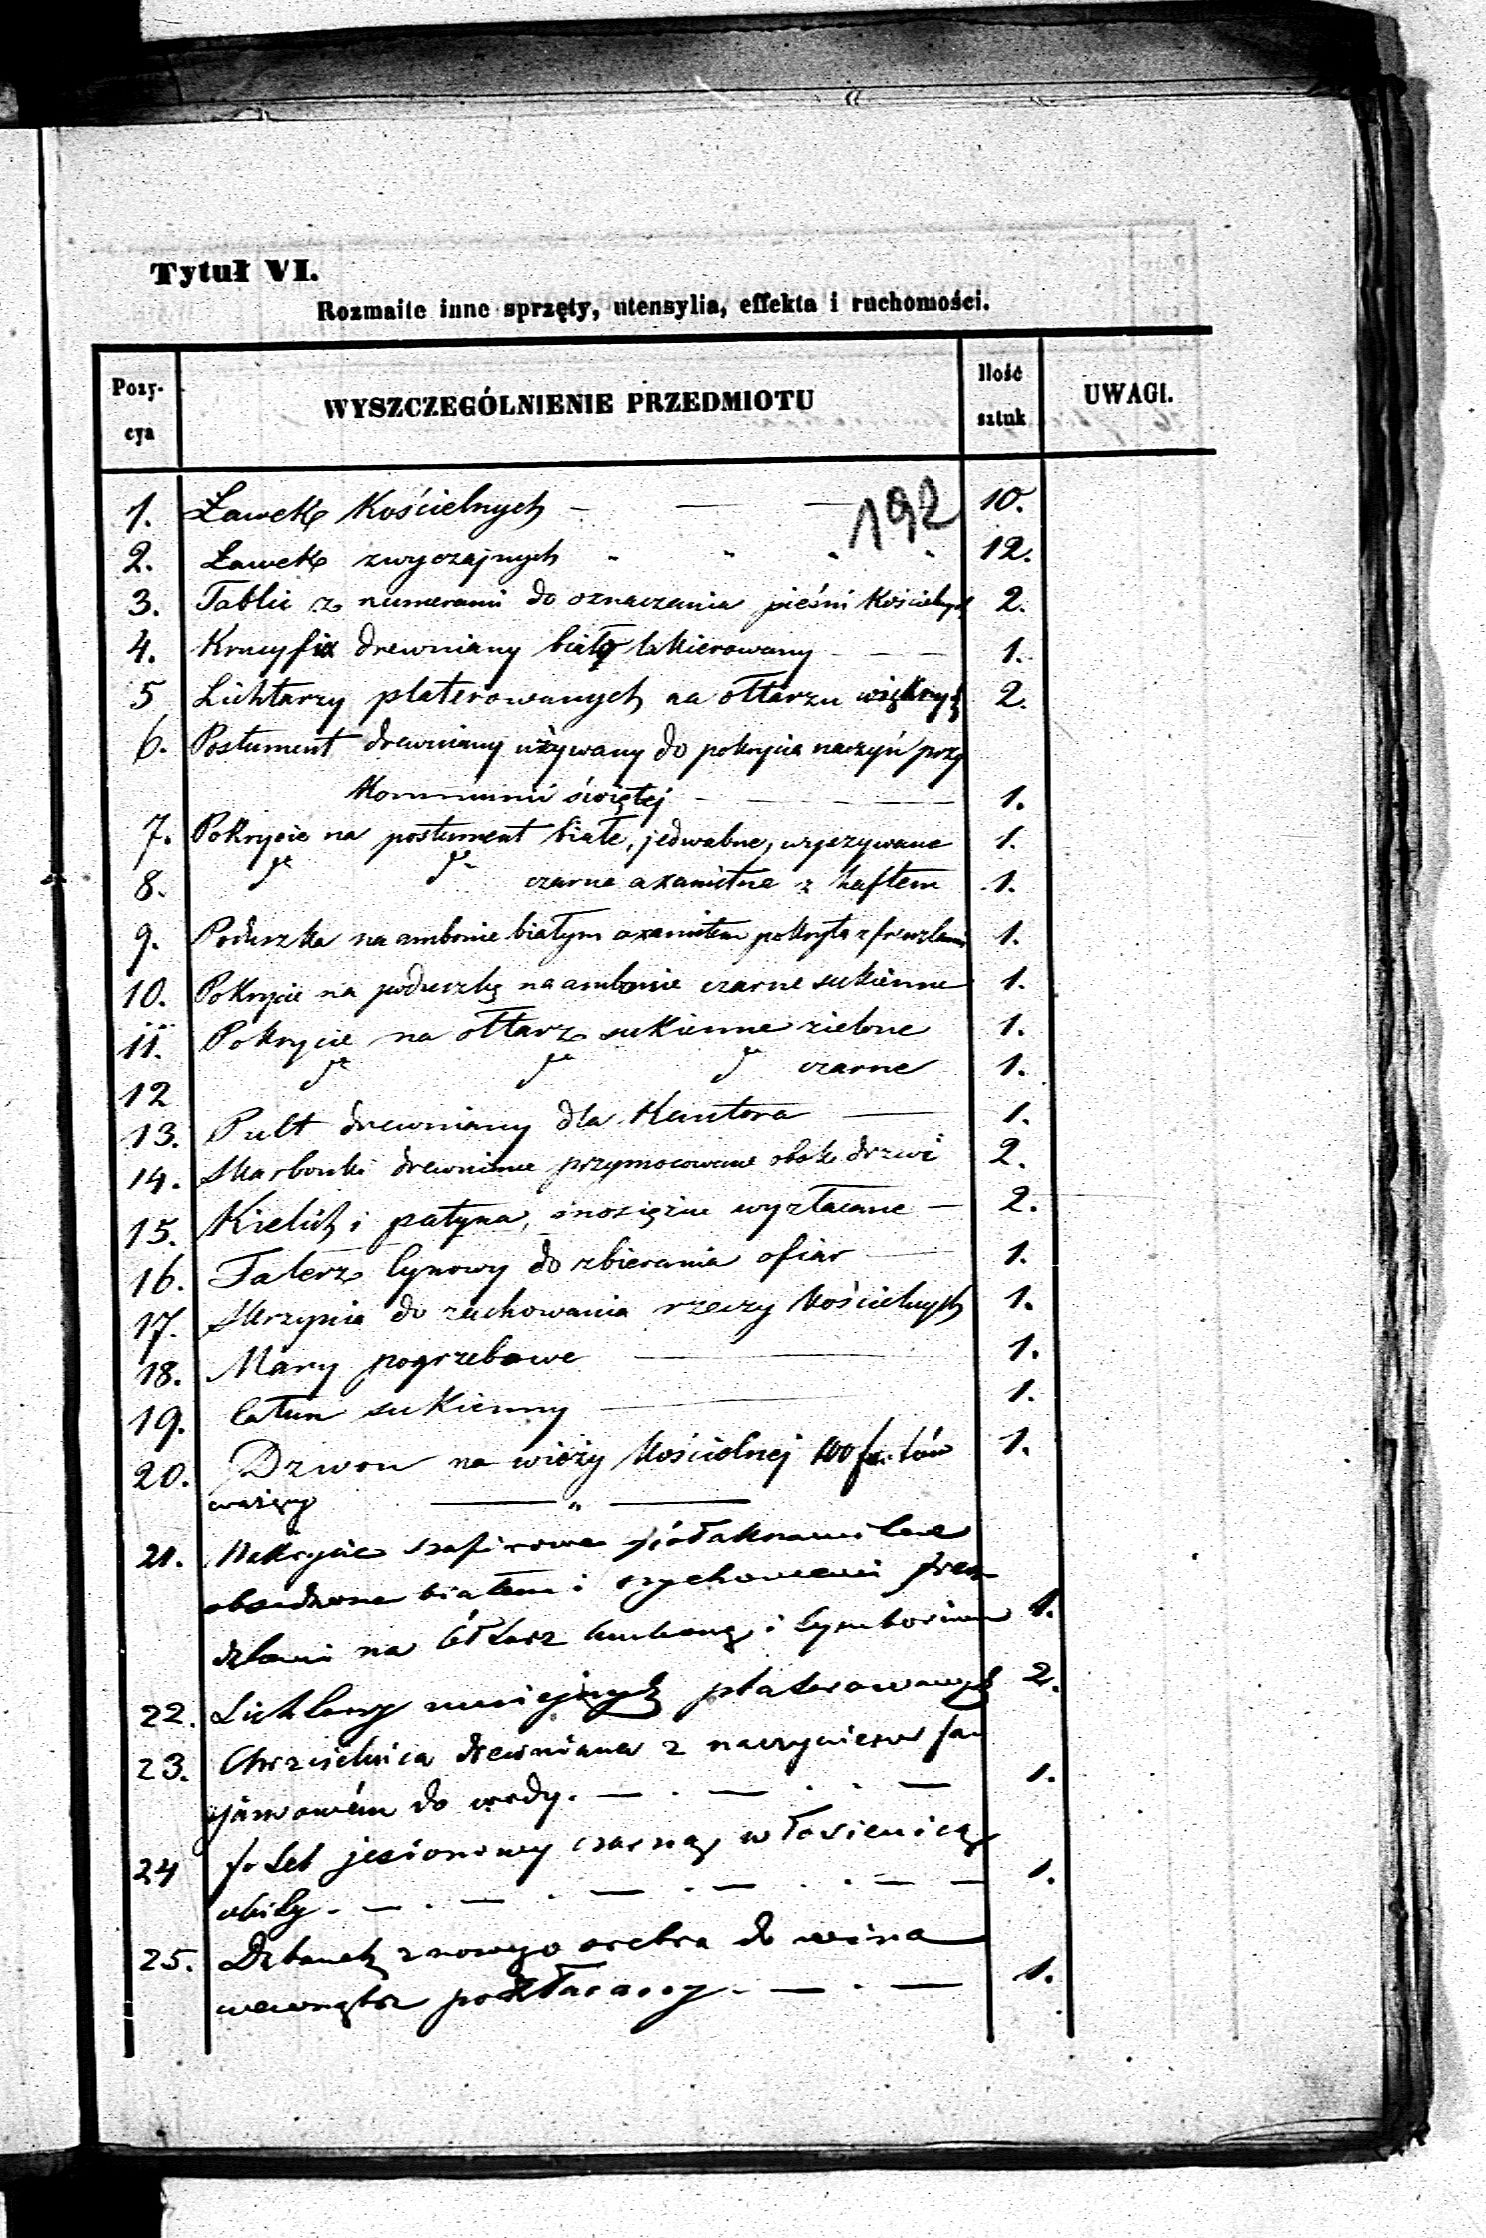 Tytuł VI.
Rozmaite inne sprzęty, utensylia, effekta i ruchomości.
Pozycya WYSZCZEGÓLNIENIE PRZEDMIOTU Ilość sztuk UWAGI.
192
1. Ławek Kościelnych — — — 10.
2. Ławek zwyczajnych " " " " 12.
3. Tablic z numerami do oznaczania pieśni Kościelnych 2.
4. Krucyfix drewniany biało lakierowany — — — 1.
5 Lichtarzy platerowanych na ołtarzu większych 2.
6. Postument drewniany używany do pokrycia naczyń przy
Kommunii świętej — — — — 1.
7. Pokrycie na postument białe, jedwabne, wyszywane 1.
8. dto dto czarne axamitne z haftem 1.
9. Poduszka na ambonie białym axamitem pokryta z frenzlami 1.
10. Pokrycie na poduszkę na ambonie czarne sukienne 1.
11. Pokrycie na ołtarz sukienne zielone 1.
12 dto dto dto czarne 1.
13. Pult drewniany dla Kantora — 1.
14. Skarbonki drewniane przymocowane obok drzwi 2.
15. Kielich i patyna, mosiężne wyzłacane — 2.
16. Talerz cynowy do zbierania ofiar — 1.
17. Skrzynia do zachowania rzeczy Kościelnych 1.
18. Mary pogrzebowe — 1.
19. Całun sukienny — 1.
20. Dzwon na wieży Kościelnej 100 funtów 1.
ważący — " —
21. Nakrycie szafirowe
obsadzone białemi i szychowemi fren
dzlami na Ołtarz i 1.
22. Lichtarzy mniejszych platerowanych 2.
23. Chrzcielnica drewniana z naczyniem fa
jansowém do wody. — . — . . — 1.
24 fotel jesionowy czarną włosienicą
obity. — . — . — . — . . — — 1.
25. Dzbanek z nowego srebra do wina
wewnątrz pozłacany. — . — 1.